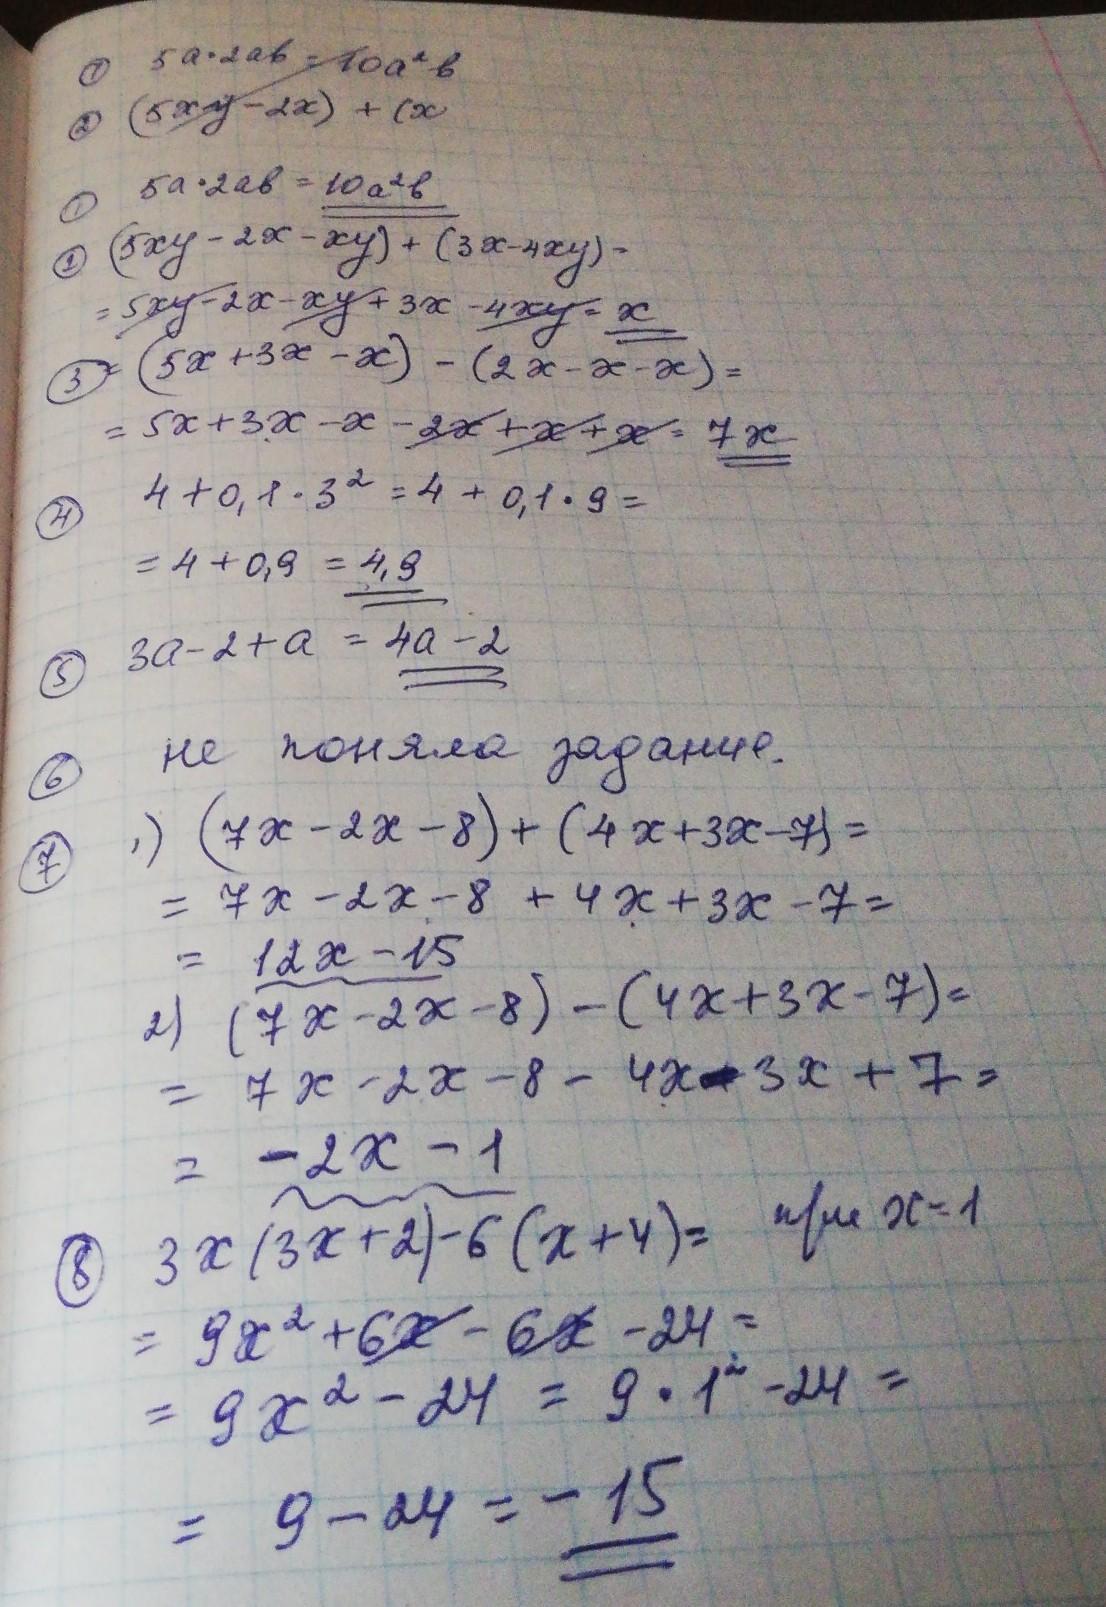 ① 5a·2ab = 10a²b
② (5xy-2x) + (x
① 5a·2ab = 10a²b
② (5xy-2x-xy)+(3x-4xy)=
= 5xy-2x-xy+3x-4xy= x
③ = (5x+3x-x)-(2x-x-x)=
= 5x+3x-x-2x+x+x= 7x
④ 4+0,1·3²=4+0,1·9=
=4+0,9 = 4,9
⑤ 3a-2+a = 4a-2
⑥ не поняла задание.
⑦ 1) (7x-2x-8)+(4x+3x-7)=
= 7x-2x-8+4x+3x-7=
= 12x-15
2) (7x-2x-8)-(4x+3x-7)=
= 7x-2x-8-4x-3x+7=
= -2x-1
⑧ 3x(3x+2)-6(x+4)= при x=1
= 9x²+6x-6x-24=
= 9x²-24 = 9·1²-24=
= 9-24=-15